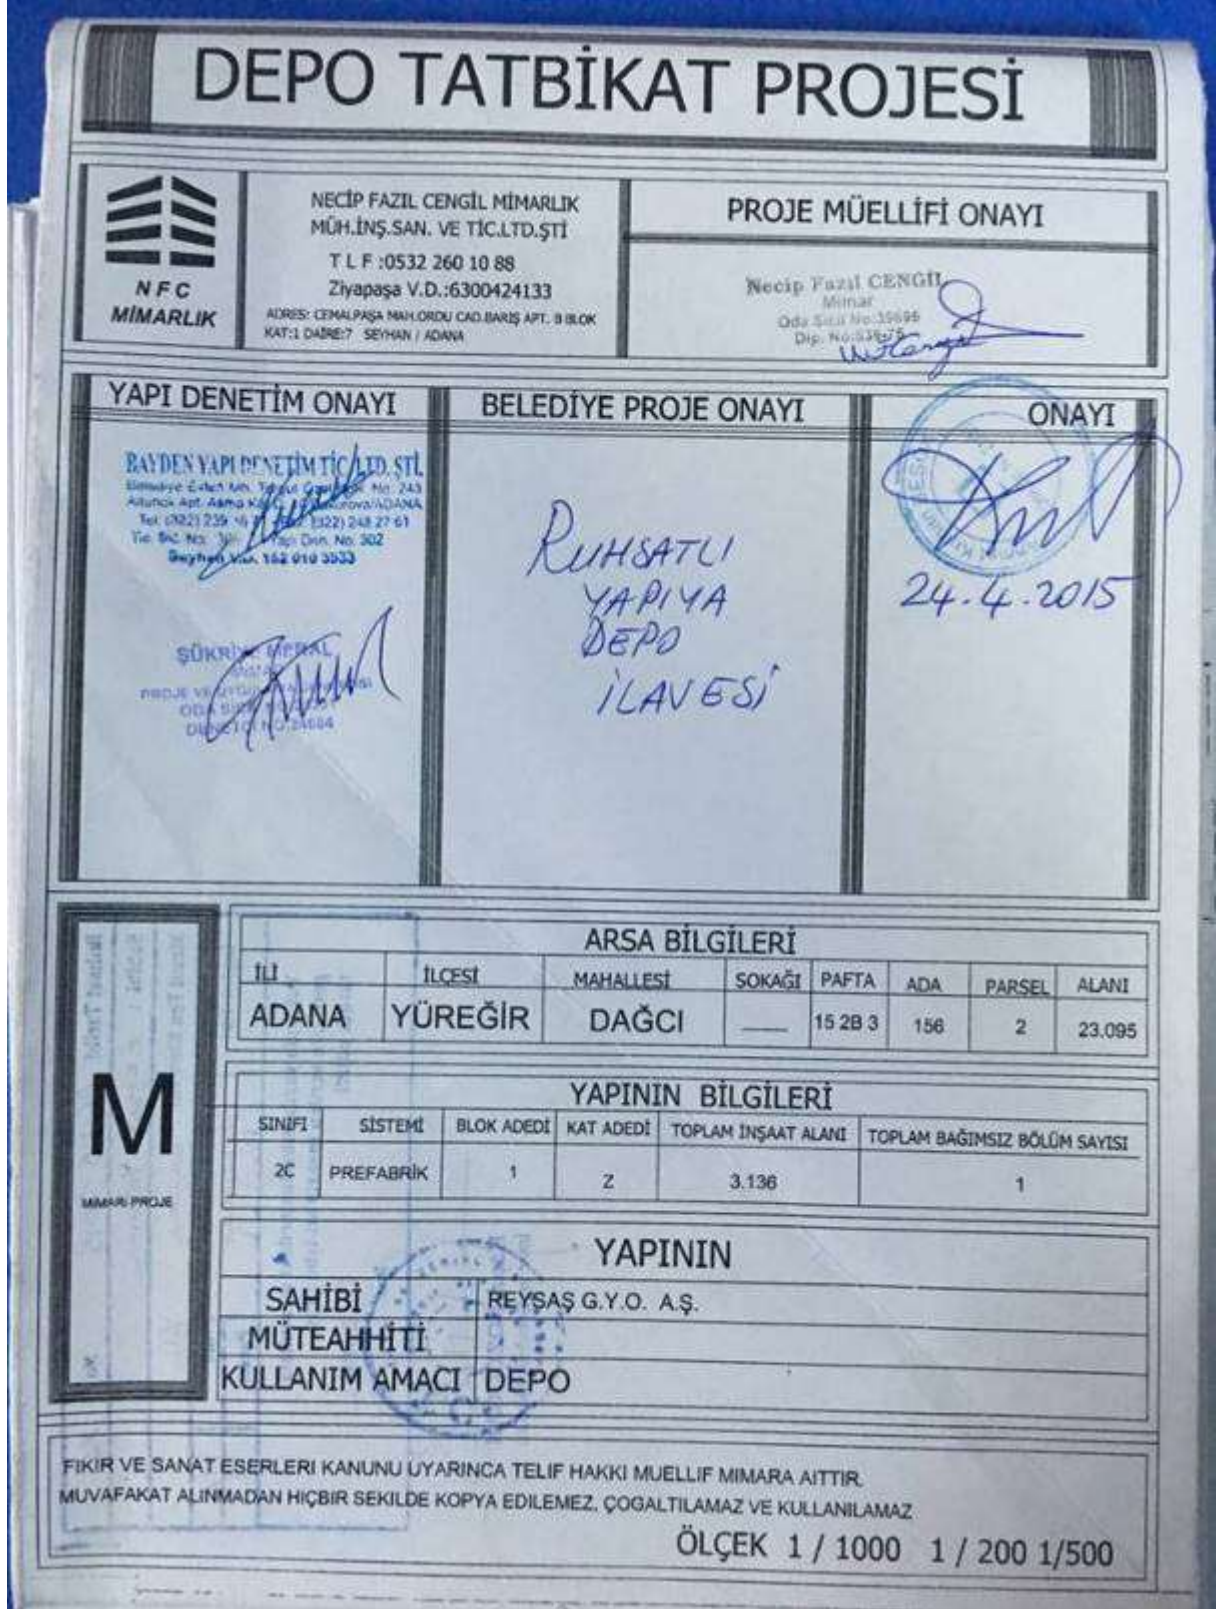 DEPO TATBİKAT PROJESİ
NFC
MİMARLIK
NECİP FAZIL CENGİL MİMARLIK
MÜH.İNŞ.SAN. VE TİC.LTD.ŞTİ
T L F :0532 260 10 88
Ziyapaşa V.D.:6300424133
ADRES: CEMALPAŞA MAH.ORDU CAD.BARIŞ APT. B BLOK
KAT:1 DAİRE:7 SEYHAN / ADANA
PROJE MÜELLİFİ ONAYI
Necip Fazıl CENGİL
Mimar
Oda Sicil No:
Dip. No:
YAPI DENETİM ONAYI
BAYDEN YAPI DENETİM TİC.LTD. ŞTİ.
No: 243
Tel: (322) 239 (322) 248 27 61
Den. No: 302
Seyhan V.D. 152 010 3533
PROJE VE
BELEDİYE PROJE ONAYI
RUHSATLI
YAPIYA
DEPO
İLAVESİ
ONAYI
24.4.2015
M
MİMARİ PROJE
ARSA BİLGİLERİ
İLİ İLÇESİ MAHALLESİ SOKAĞI PAFTA ADA PARSEL ALANI
ADANA YÜREĞİR DAĞCI ___ 15 2B 3 156 2 23.095
YAPININ BİLGİLERİ
SINIFI SİSTEMİ BLOK ADEDİ KAT ADEDİ TOPLAM İNŞAAT ALANI TOPLAM BAĞIMSIZ BÖLÜM SAYISI
2C PREFABRİK 1 Z 3.136 1
YAPININ
SAHİBİ REYSAŞ G.Y.O. A.Ş.
MÜTEAHHİTİ
KULLANIM AMACI DEPO
FIKIR VE SANAT ESERLERI KANUNU UYARINCA TELIF HAKKI MUELLIF MIMARA AITTIR.
MUVAFAKAT ALINMADAN HIÇBIR SEKILDE KOPYA EDILEMEZ, ÇOGALTILAMAZ VE KULLANILAMAZ
ÖLÇEK 1 / 1000 1 / 200 1/500